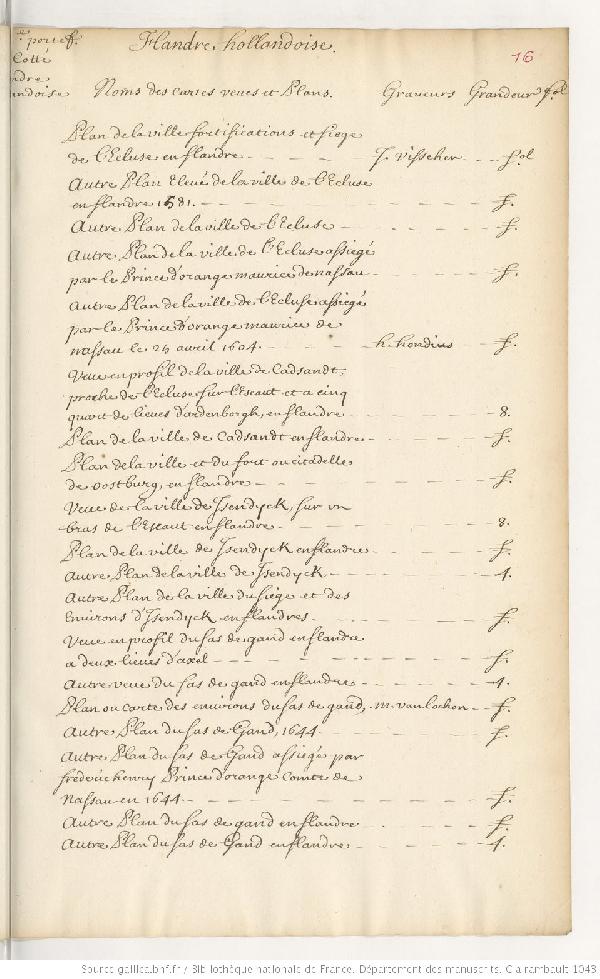 portef. Flandre hollandoise. 16
Cotté
ndre
andoise Noms des cartes veues et Plans. Graveurs Grandeur fol
Plan de la ville fortifications et siege
de l'Ecluse en flandre - - - J. Visscher - - fol
Autre Plan Elevé de la ville de l'Ecluse
en flandre 1581. - - - f.
Autre Plan de la ville de l'Ecluse - - - f.
Autre Plan de la ville de l'Ecluse assiegé
par le Prince d'orange maurice de nassau - - - f.
Autre Plan de la ville de l'Ecluse assiegé
par le Prince d'orange maurice de
nassau le 25 avril 1604. - - - h. hondius - - f.
Veue en profil de la ville de Cadsandt,
proche de l'Ecluse sur l'Escaut et a cinq
quart de lieues d'ardenborgh, en flandre - - - 8.
Plan de la ville de Cadsandt en flandre - - - f.
Plan de la ville et du fort ou citadelle
de oostburg, en flandre - - - f.
Veue de la ville de Isendyck, sur un
bras de l'Escaut en flandre - - - 8.
Plan de la ville de Isendyck en flandre - - - f.
Autre Plan de la ville de Isendyck - - - 4.
Autre Plan de la ville du siege et des
Environs d'Isendyck en flandres. - - - f.
Veue en profil du sas de gand en flandre
a deux lieues d'axel - - - f.
Autre veue du sas de gand en flandre - - - 4.
Plan ou carte des environs du sas de gand, m. van lochen - - f.
Autre Plan du sas de Gand, 1644 - - - f.
Autre Plan du sas de Gand assiegé par
frederic henry Prince d'orange Comte de
Nassau en 1644 - - - f.
Autre Plan du sas de gand en flandre - - - f.
Autre Plan du sas de Gand en flandre. - - - 4.
Source gallica.bnf.fr / Bibliothèque nationale de France. Département des manuscrits. Clairambault 1043